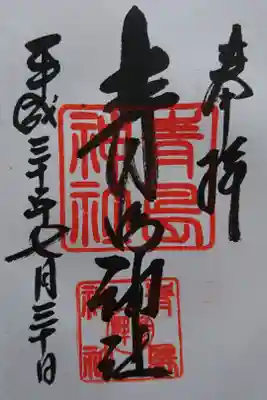 奉拝
青島神社
平成三十年七月三十日
青島神社